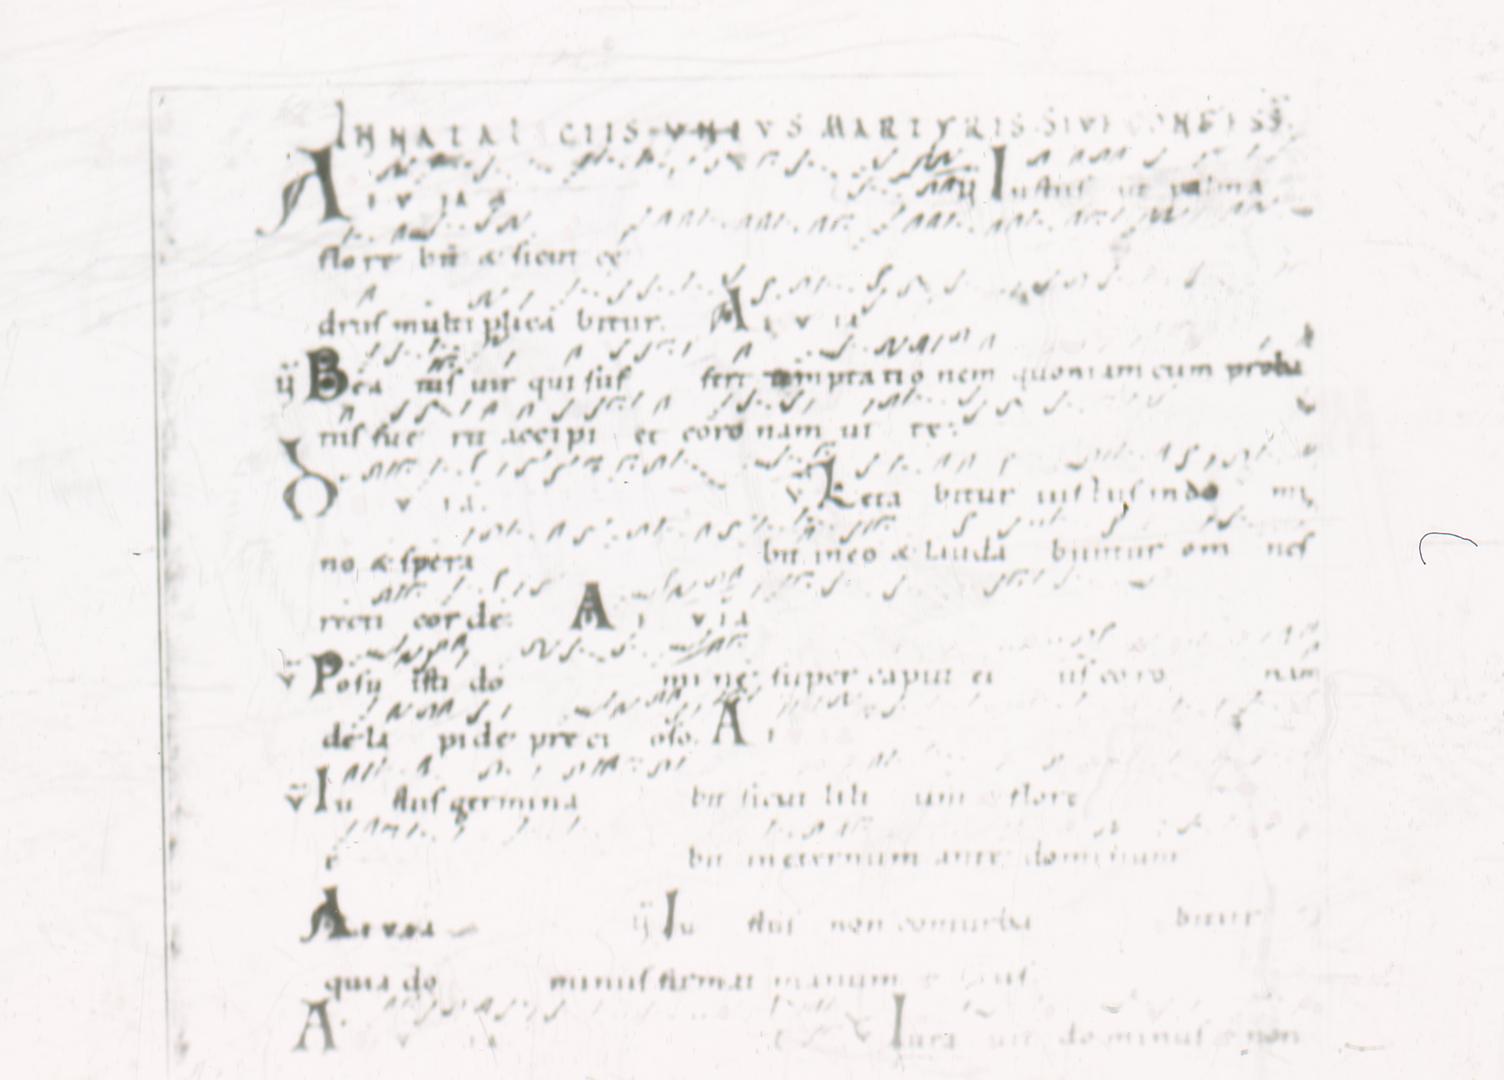 IN NATALICIIS UNIUS MARTYRIS SIVE CONFESS.
A I V IA A ў Iustus ut palma
flore bit & sicut ce
drus multi plica bitur. A I V IA
ў Bea tus uir qui suf fert temptatio nem quoniam cum proba
tus fue rit accipi et coro nam ui te:
V IA. v Leta bitur iustus in do mi
no & spera bit in eo & lauda buntur om nes
recti cor de: A I V IA
v Posu isti do mi ne super caput ei us coro nam
de la pi de preci oso. A I
v Iu stus germina bit sicut lili um & flore
e bit in eternum ante dominum
A E V IA ў Iu stus non conturba bitur
quia do minus firmat manum eius
A V IA v Iura uit dominus & non